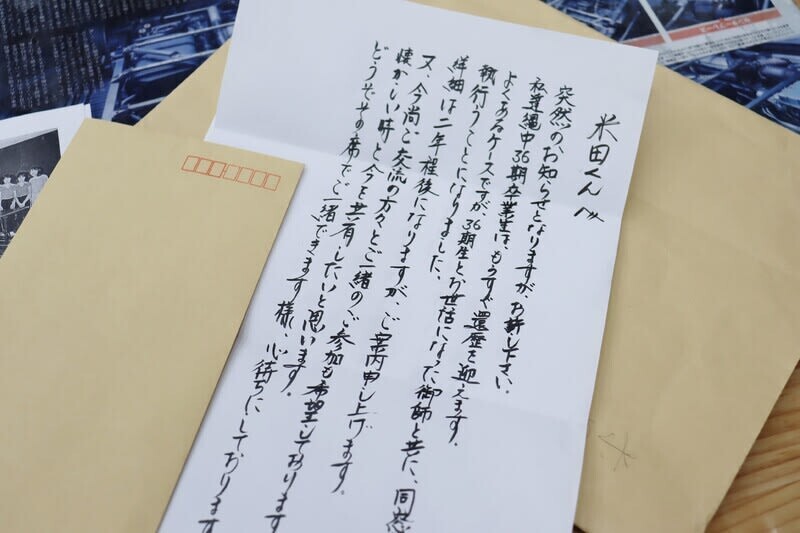 米田くんへ
突然のお知らせとなりますが、お許し下さい。
私達縄中36期卒業生は、もうすぐ還暦を迎えます。
よくあるケースですが、36期生とお世話になった御師と共に、同窓
執行うことになりました。
詳細は二年程後になりますが、ご案内申し上げます。
又、今尚ご交流の方々とご一緒のご参加も希望しております
懐かしい時と今を共有したいと思います。
どうぞその席でご一緒できます様、心待ちにしております